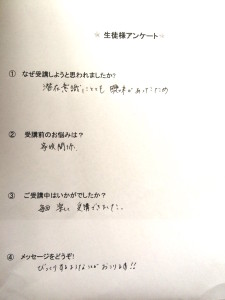 ☆ 生徒様アンケート☆
① なぜ受講しようと思われましたか?
潜在意識にとても 興味があったため
② 受講前のお悩みは?
家族関係.
③ ご受講中はいかがでしたか?
毎回 楽しく 受講できました.
④ メッセージをどうぞ!
びっくりするようなことがおこります!!